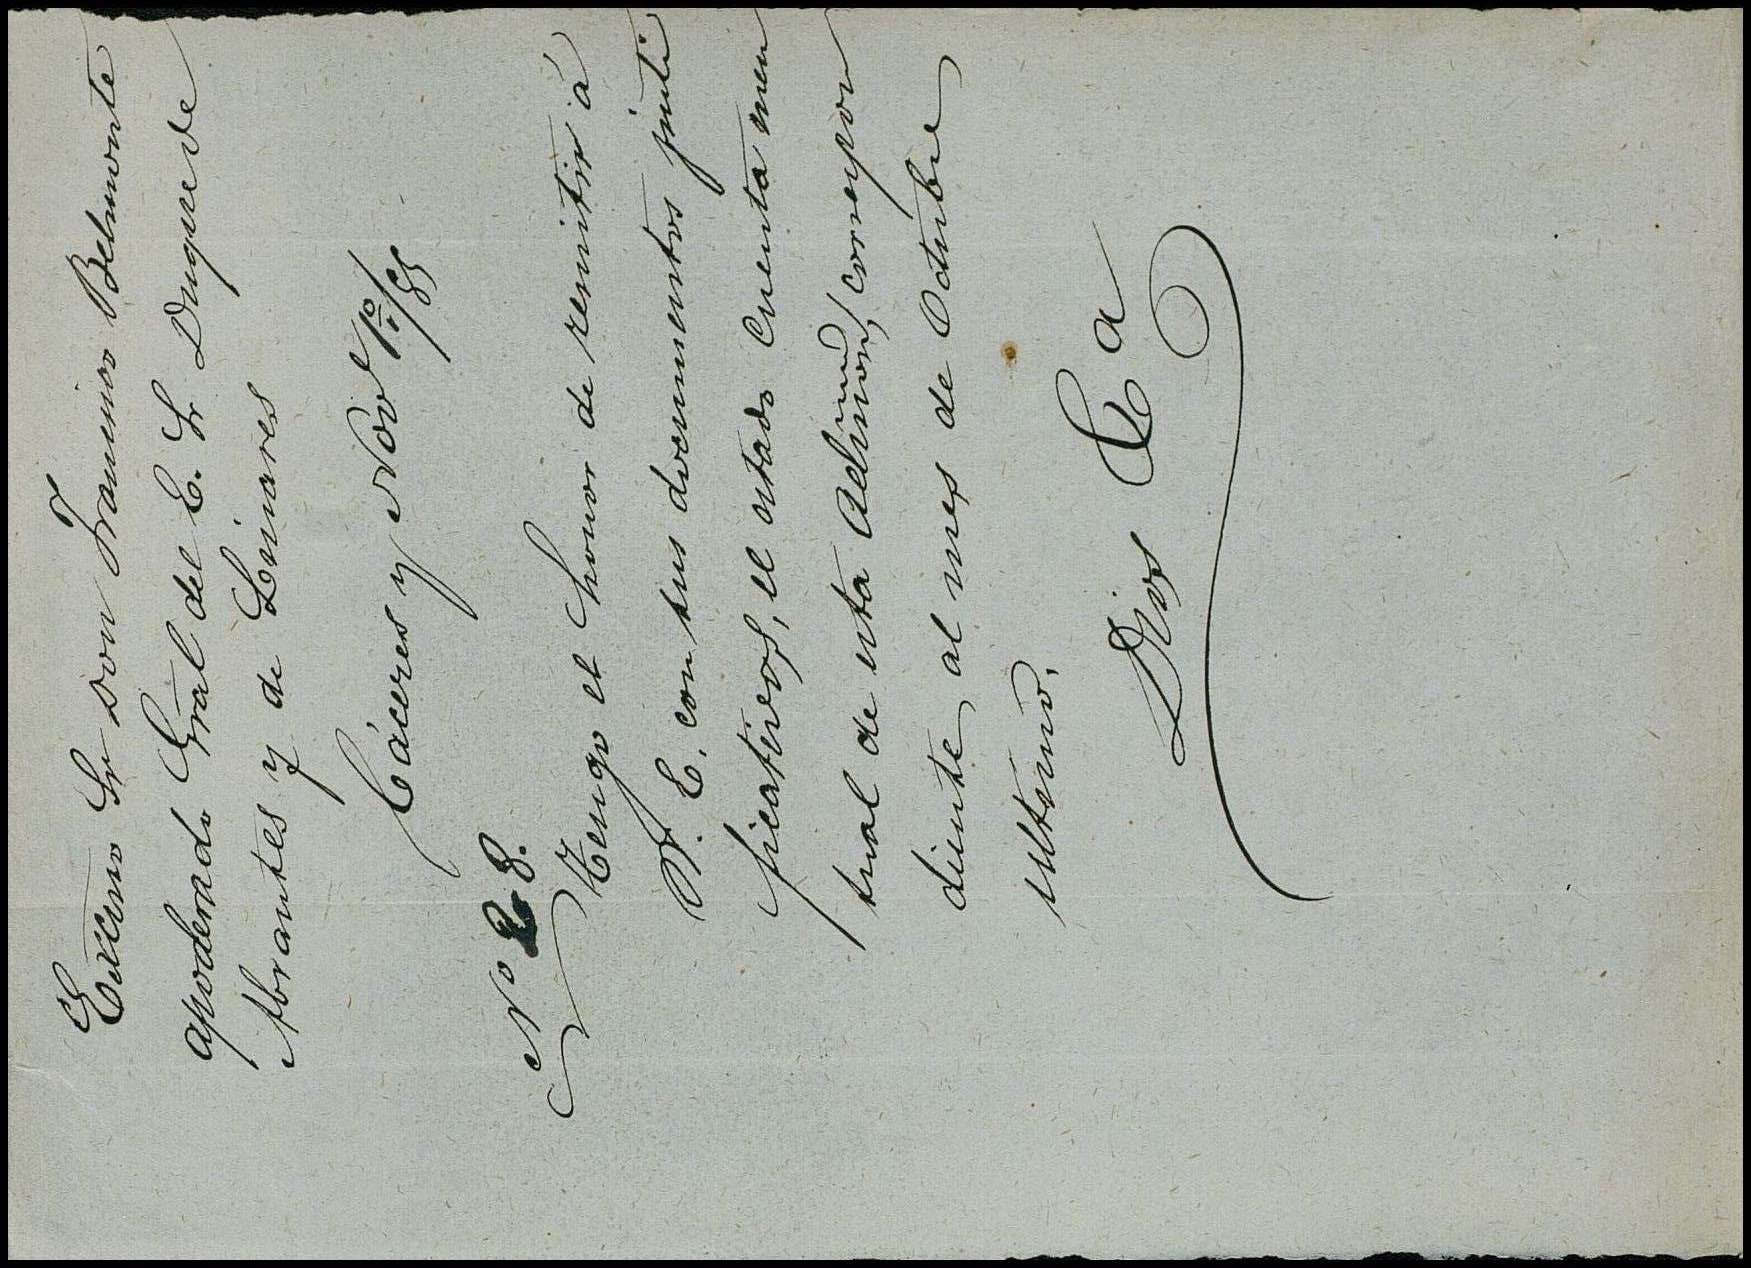 Excmo Sr don Francisco Belmonte
apoderado Gral del E. Sr Duque de
Abrantes y de Linares
Cáceres y Nov.e 1º/85
Nº 28.
Tengo el honor de remitir á
V. E. con sus documentos justi
ficativos, el estado Cuenta men
sual de esta Admon, correspon
diente al mes de Octubre
ultimo.
Dios &a